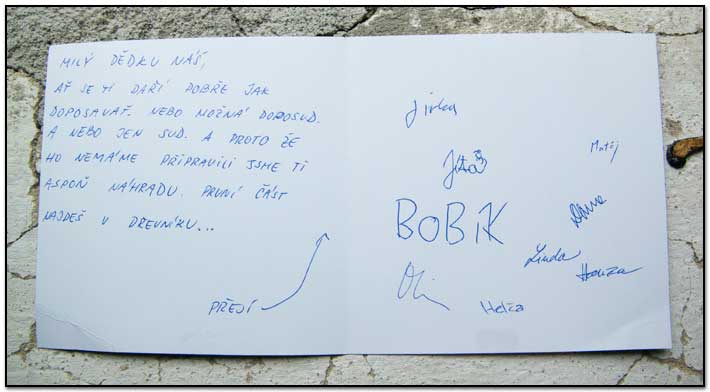 MILÝ DĚDKU NÁŠ,
AŤ SE TI DAŘÍ DOBŘE JAK
DOPOSAVAŤ. NEBO MOŽNÁ DOPOSUD.
A NEBO JEN SUD. A PROTO ŽE
HO NEMÁME PŘIPRAVILI JSME TI
ASPOŇ NÁHRADU. PRVNÍ ČÁST
NAJDEŠ V DŘEVNÍKU...
PŘEJÍ
Jirka
Matěj
BOBIK
Linda
Helča